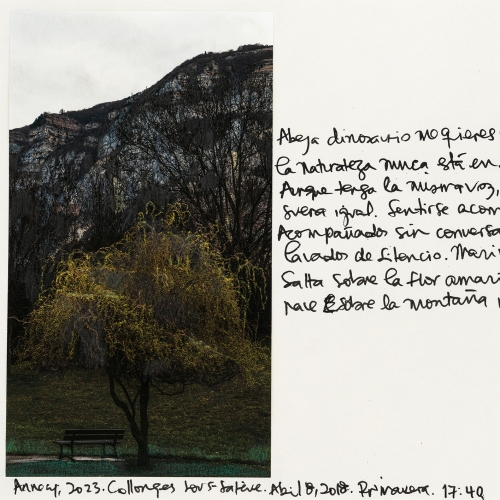 Abeja dinosaurio no quieres
la naturaleza nunca está en
Aunque tenga la misma voz,
suena igual. Sentirse acom
Acompañados sin conversa
lavados de silencio. Mari
Salta sobre la flor amari
nace sobre la montaña
Annecy, 2023. Collonges sous Salève. Abril 8, 2018. Primavera. 17:40